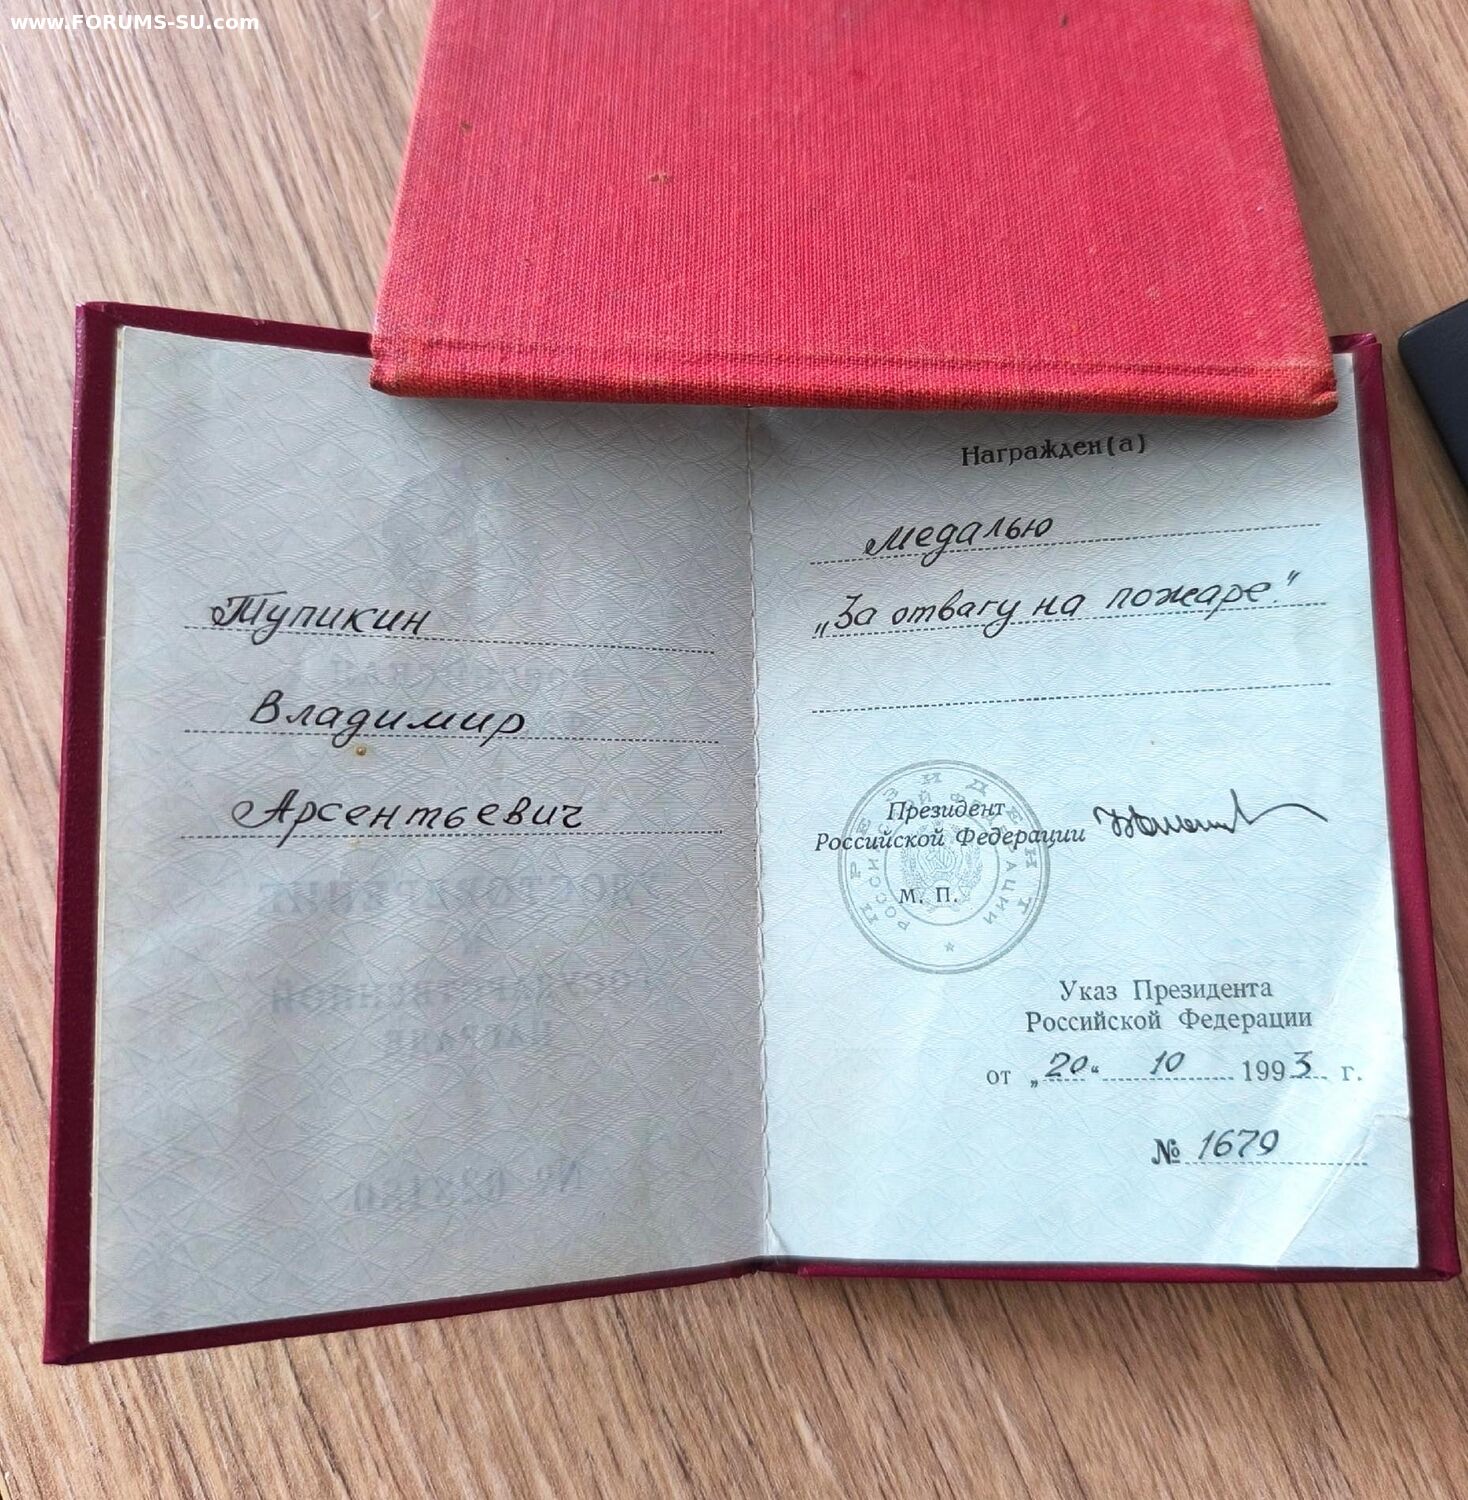 www.FORUMS-SU.com
Тупикин
Владимир
Арсентьевич
Награжден(а)
медалью
„За отвагу на пожаре."
ПРЕЗИДЕНТ
РОССИЙСКОЙ ФЕДЕРАЦИИ
Президент
Российской Федерации
М. П.
Указ Президента
Российской Федерации
от „20“ 10 1993 г.
№ 1679